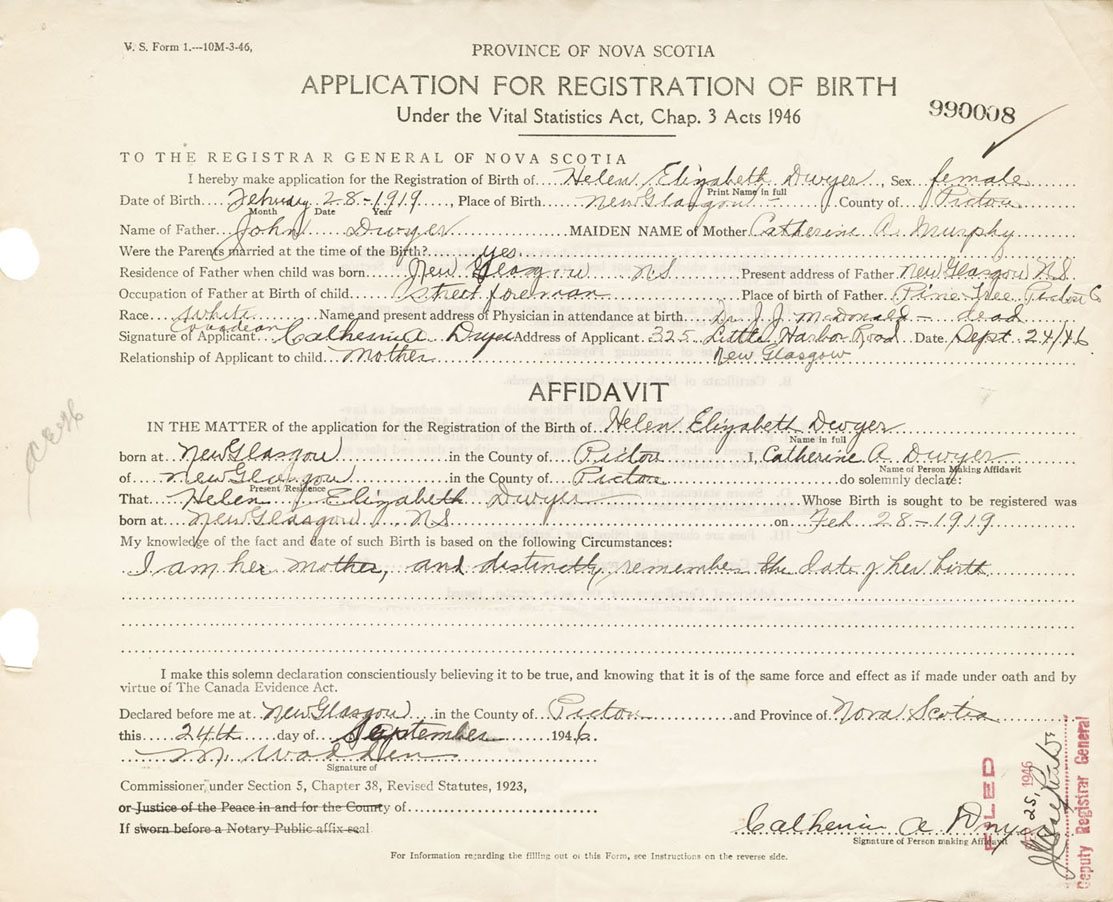 V. S. Form 1.---10M-3-46,
PROVINCE OF NOVA SCOTIA
APPLICATION FOR REGISTRATION OF BIRTH
Under the Vital Statistics Act, Chap. 3 Acts 1946
990008
TO THE REGISTRAR GENERAL OF NOVA SCOTIA
I hereby make application for the Registration of Birth of Helen Elizabeth Dwyer, Sex female
Print Name in full
Date of Birth February 28-1919, Place of Birth New Glasgow - County of Pictou
Month Date Year
Name of Father John Dwyer MAIDEN NAME of Mother Catherine A. Murphy
Were the Parents married at the time of the Birth? yes
Residence of Father when child was born New Glasgow NS Present address of Father New Glasgow NS
Occupation of Father at Birth of child street foreman Place of birth of Father Pine Tree Pictou C
Race white Name and present address of Physician in attendance at birth Dr. J. J. McDonald - dead
Canadean
Signature of Applicant Catherin A Dwyer Address of Applicant 325 Little Harbor Road Date Sept 24/46
Relationship of Applicant to child Mother New Glasgow
AFFIDAVIT
IN THE MATTER of the application for the Registration of the Birth of Helen Elizabeth Dwyer
Name in full
born at New Glasgow in the County of Pictou I, Catherine A. Dwyer
Name of Person Making Affidavit
of New Glasgow in the County of Pictou do solemnly declare:
Present Residence
That Helen Elizabeth Dwyer Whose Birth is sought to be registered was
born at New Glasgow NS on Feb 28-1919
My knowledge of the fact and date of such Birth is based on the following Circumstances:
I am her mother, and distinctly remember the date of her birth
I make this solemn declaration conscientiously believing it to be true, and knowing that it is of the same force and effect as if made under oath and by
virtue of The Canada Evidence Act.
Declared before me at New Glasgow in the County of Pictou and Province of Nova Scotia
this 24th day of September 1946.
M. Wadden
Signature of
Commissioner under Section 5, Chapter 38, Revised Statutes, 1923,
or Justice of the Peace in and for the County of
If sworn before a Notary Public affix seal
Catherin A Dwyer
Signature of Person making Affidavit
FILED
25, 1946
Deputy Registrar General
For Information regarding the filling out of this Form, see Instructions on the reverse side.